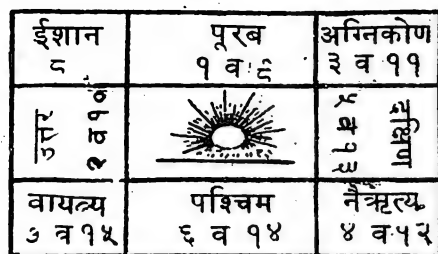 ईशान
८
पूरब
१ व ८
अग्निकोण
३ व ११
उत्तर
२ व १०
दक्षिण
५ व १३
वायव्य
७ व १५
पश्चिम
६ व १४
नैऋत्य
४ व १२